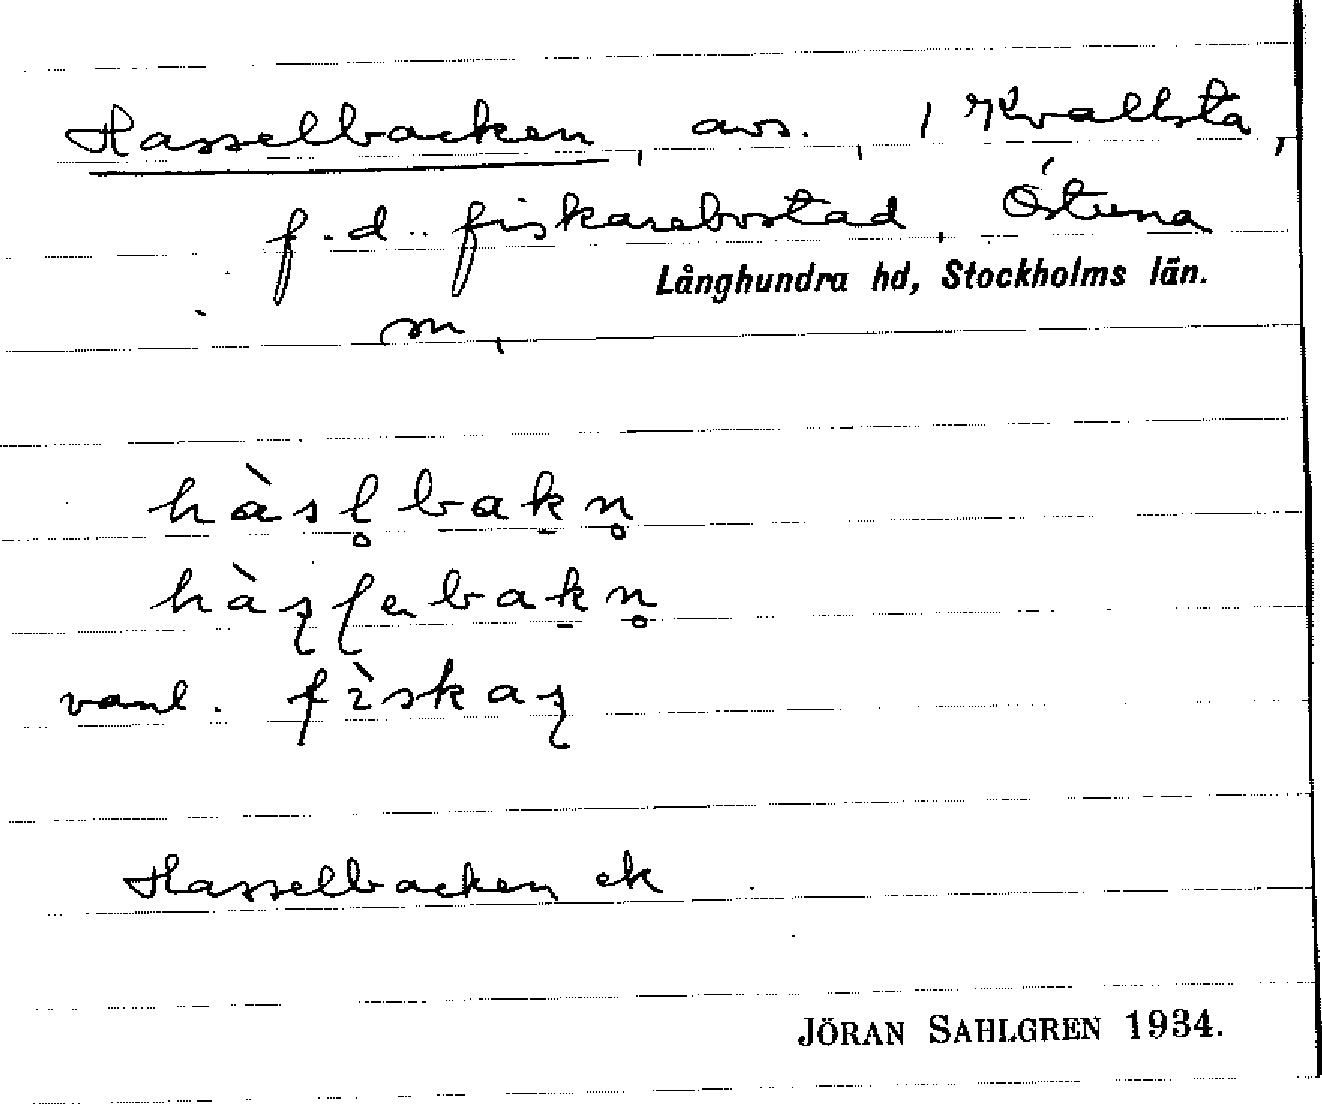 Hasselbacken, avs., i Kvallsta,
f.d. fiskarebostad, Östuna
Långhundra hd, Stockholms län.
m,
hàsl̥bakn̥
hàʂɭebakn̥
vanl. fìskaʂ
Hasselbacken ek
JÖRAN SAHLGREN 1934.